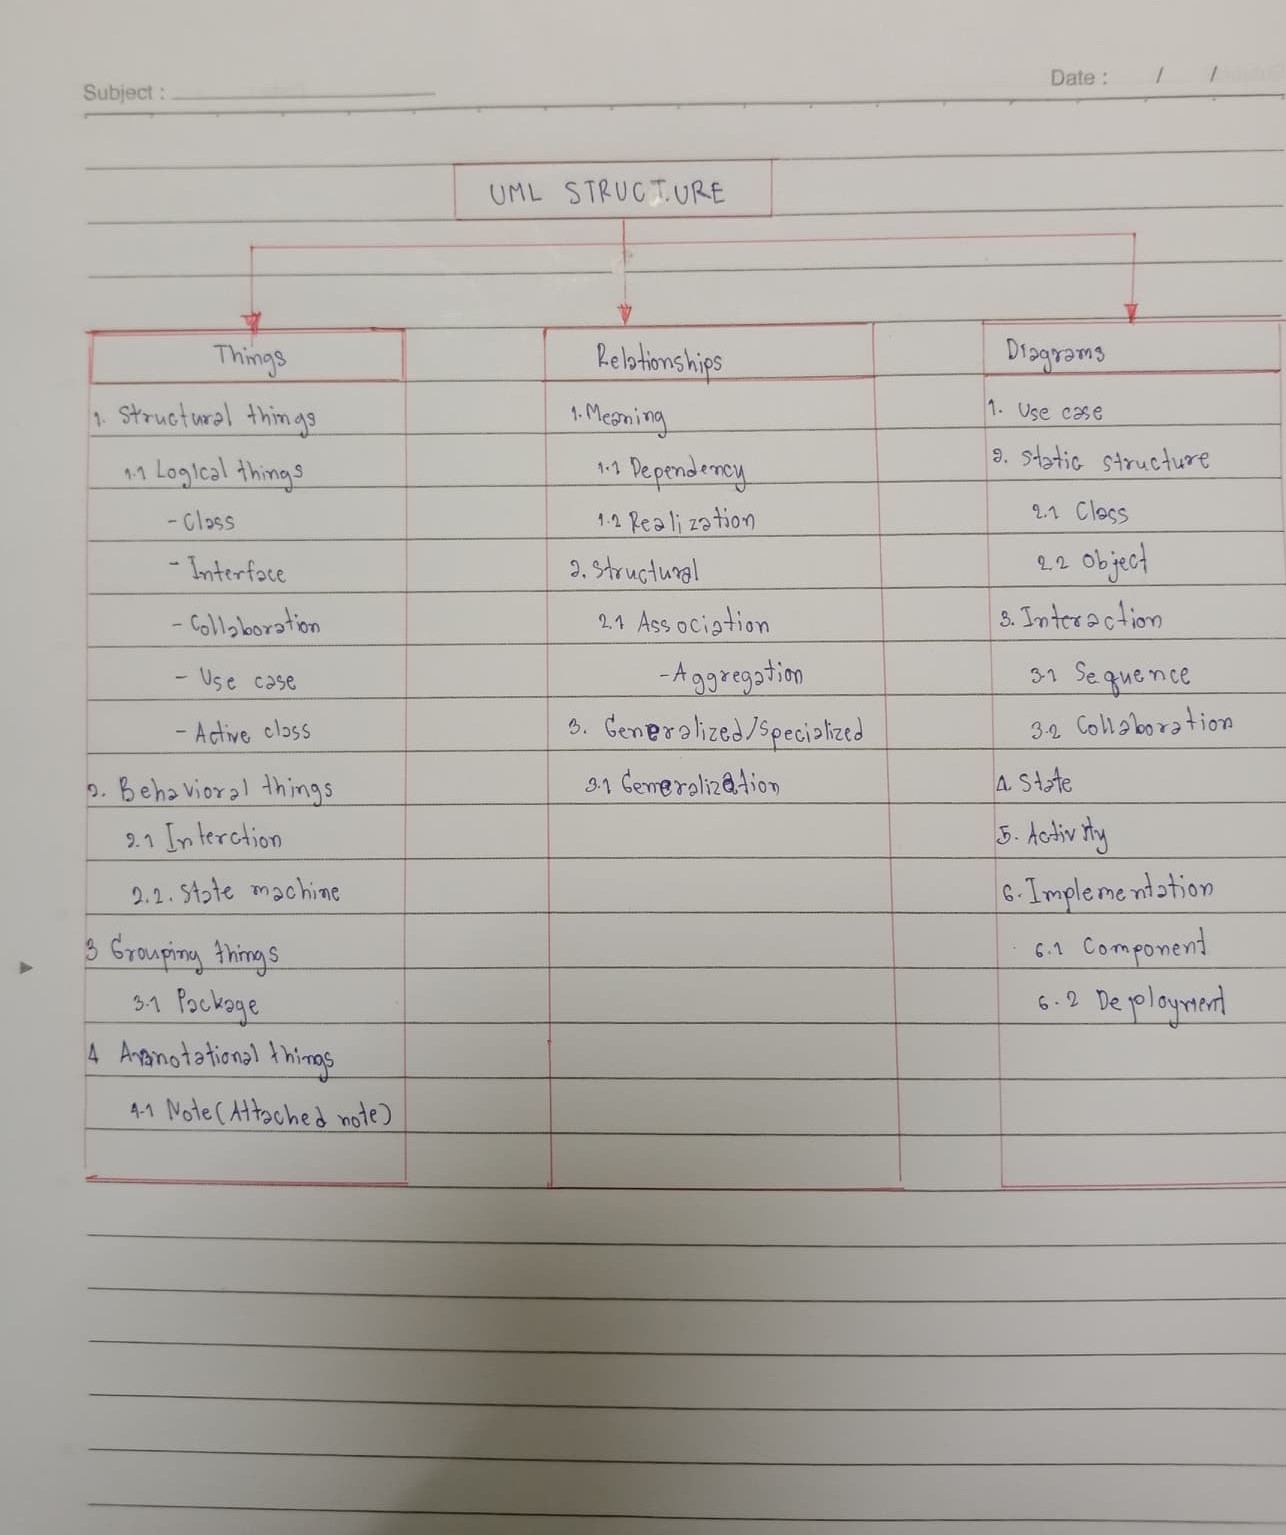 Subject :
Date : / /
UML STRUCTURE
Things
1. Structural things
1.1 Logical things
- Class
- Interface
- Collaboration
- Use case
- Active class
2. Behavioral things
2.1 Interction
2.2. State machine
3 Grouping things
3.1 Package
4 Annotational things
4.1 Note (Attached note)
Relationships
1. Meaning
1.1 Dependency
1.2 Realization
2. Structural
2.1 Association
- Aggregation
3. Generalized/Specialized
3.1 Generalization
Diagrams
1. Use case
2. Static structure
2.1 Class
2.2 Object
3. Interaction
3.1 Sequence
3.2 Collaboration
4. State
5. Activity
6. Implementation
6.1 Component
6.2 Deployment